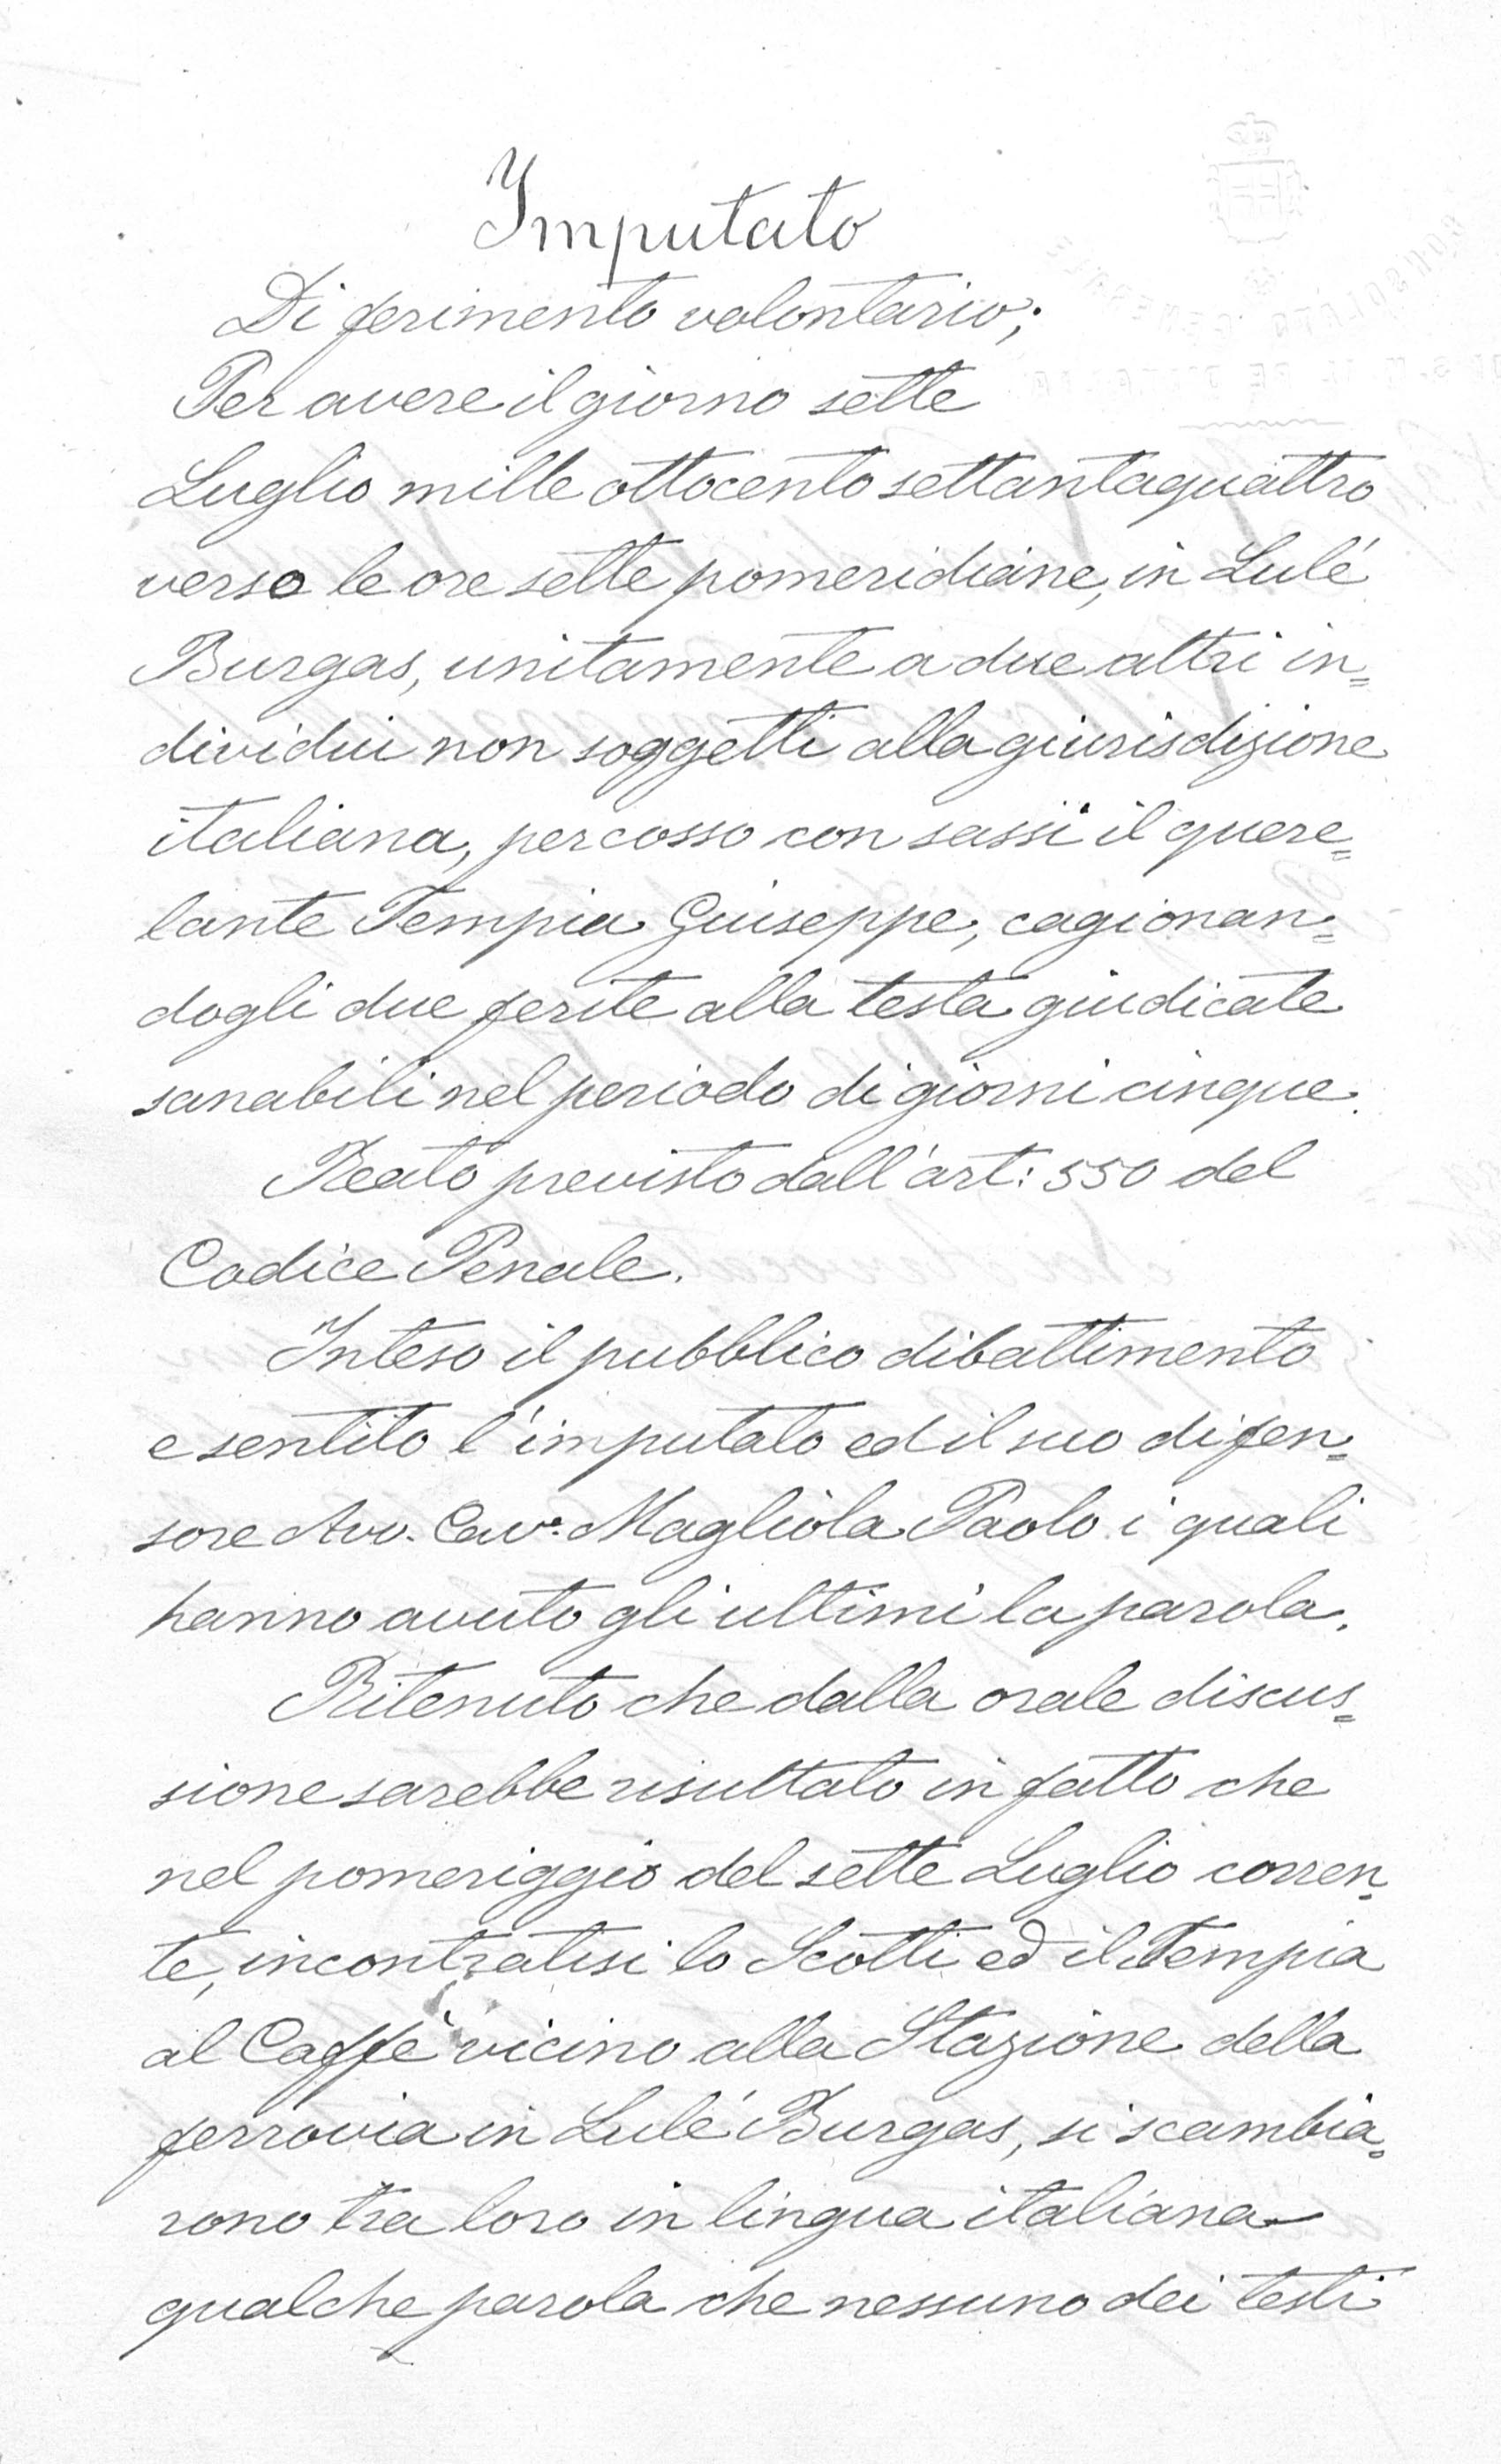 Imputato
Di ferimento volontario;
Per avere il giorno sette
Luglio mille ottocento settantaquattro
verso le ore sette pomeridiane, in Lulé
Burgas, unitamente a due altri in=
dividui non soggetti alla giurisdizione
italiana, percosso con sassi il quere=
lante Tempia Giuseppe, cagionan=
dogli due ferite alla testa giudicate
sanabili nel periodo di giorni cinque.
Reato previsto dall'art: 550 del
Codice Penale.
Inteso il pubblico dibattimento
e sentito l'imputato ed il suo difen=
sore Avv. Cav.e Magliola Paolo i quali
hanno avuto gli ultimi la parola.
Ritenuto che dalla orale discus=
sione sarebbe risultato in fatto che
nel pomeriggio del sette Luglio corren=
te, incontratisi lo Scotti ed il Tempia
al Caffè vicino alla Stazione della
ferrovia in Lulé Burgas, si scambia=
rono tra loro in lingua italiana
qualche parola che nessuno dei testi